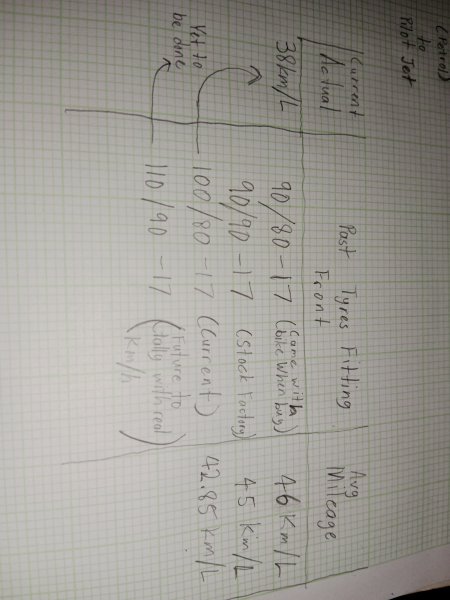 (Petrol)
to
Pilot Jet
Current
Actual
Past Tyres Fitting
Front
Avg
Mileage
38km/L
90/80-17 (Came with
bike when buy)
46 Km/L
90/90-17 (Stock Factory)
45 Km/L
Yet to
be done
100/80-17 (Current)
42.85 km/L
110/90-17 (Future to
tally with real
km/h)